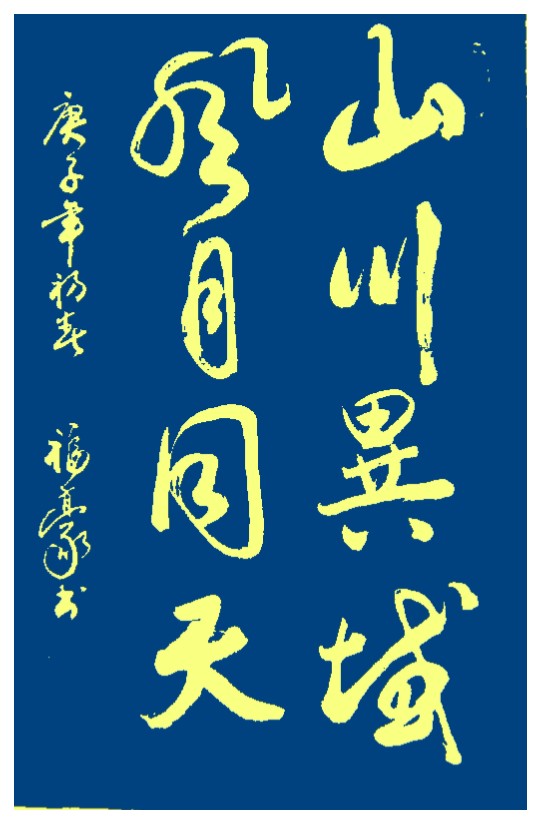 山川異域
風月同天
庚子年初春 福豪书